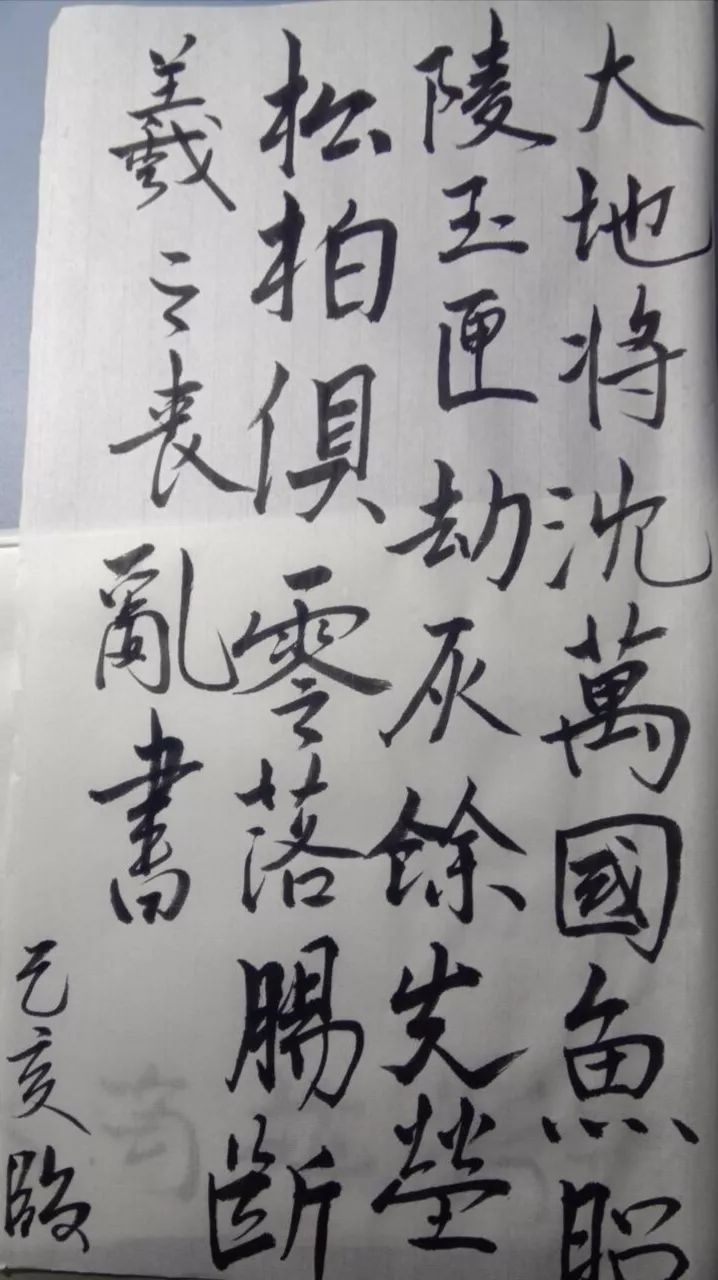 大地将沈萬國魚昭
陵玉匣劫灰餘先塋
松柏俱零落腸斷
羲之喪亂書
己亥臨